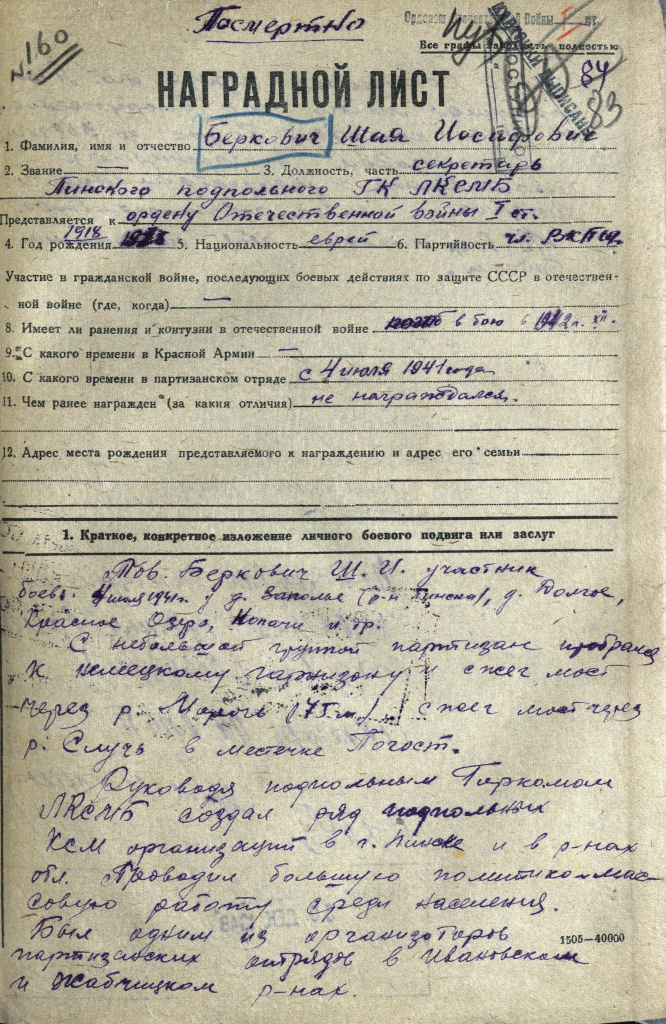 Посмертно
Орденом Отечественной Войны I ст.
№ 160
Все графы заполнять полностью
84
83
НАГРАДНОЙ ЛИСТ
1. Фамилия, имя и отчество Беркович Шая Иосифович
2. Звание — 3. Должность, часть секретарь
Пинского подпольного ГК ЛКСМБ
Представляется к ордену Отечественной войны I ст.
1918
4. Год рождения 5. Национальность еврей 6. Партийность чл. ВКП(б)
Участие в гражданской войне, последующих боевых действиях по защите СССР в отечествен-
ной войне (где, когда) —
8. Имеет ли ранения и контузии в отечественной войне погиб в бою в 1942 г. XII.
9. С какого времени в Красной Армии —
10. С какого времени в партизанском отряде с 4 июля 1941 года
11. Чем ранее награжден (за какия отличия) не награждался.
12. Адрес места рождения представляемого к награждению и адрес его семьи
1. Краткое, конкретное изложение личного боевого подвига или заслуг
Тов. Беркович Ш. И. участник
боев: 4 июля 1941 г. у д. Заполье (р-н Пинска), д. Долгое,
Красное Озеро, Копачи и др.
С небольшой группой партизан пробрался
к немецкому гарнизону и сжег мост
через р. Морочь (75 м), сжег мост через
р. Случь в местечке Погост.
Руководя подпольным Горкомом
ЛКСМБ создал ряд подпольных
КСМ организаций в г. Пинске и в р-нах
обл. Проводил большую политико-мас-
совую работу среди населения.
Был одним из организаторов
1505—40000
партизанских отрядов в Ивановском
и Жабчицком р-нах.